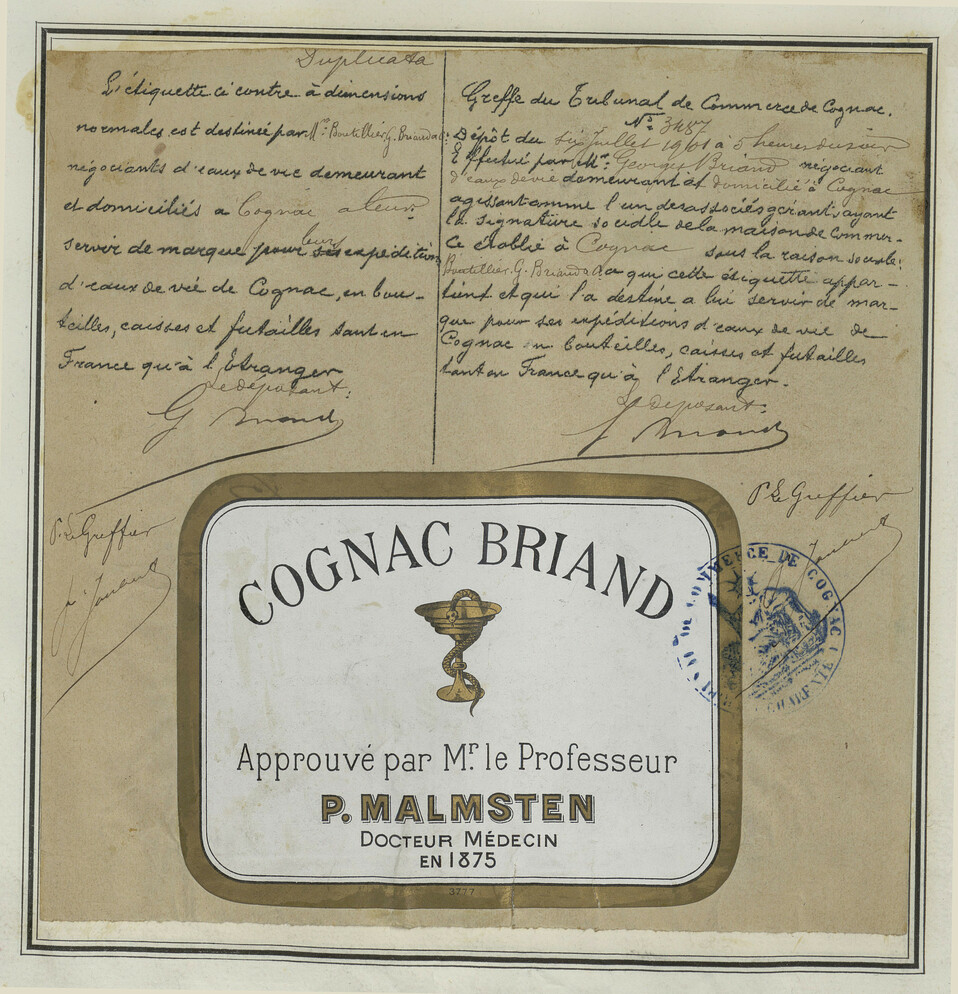 Duplicata
L'étiquette ci contre à dimensions
normales est destinée par Mrs Boutillier G. Briand & Co
négociants d'eaux de vie demeurant
et domiciliés a Cognac a leur
servir de marque pour leurs expéditions
d'eaux de vie de Cognac, en bou-
teilles, caisses et futailles tant en
France qu'à l'Etranger
Le déposant:
G Briand
P. Le Greffier
Greffe du Tribunal de Commerce de Cognac.
No 3487
Dépôt du six Juillet 1901 à 5 heures du soir
Effectué par Mr Georges Briand négociant
d'eaux de vie demeurant et domicilié à Cognac
agissant comme l'un des associés gérant, ayant
la signature sociale de la maison de Commer-
ce établie à Cognac sous la raison sociale:
Boutillier G. Briand & Co a qui cette étiquette appar-
tient et qui l'a destiné a lui servir de mar-
que pour ses expéditions d'eaux de vie de
Cognac en bouteilles, caisses et futailles
tant en France qu'à l'Etranger.
Le déposant:
G Briand
P. Le Greffier
COGNAC BRIAND
Approuvé par Mr. le Professeur
P. MALMSTEN
DOCTEUR MÉDECIN
EN 1875
3777
COMMERCE DE COGNAC
CHARENTE